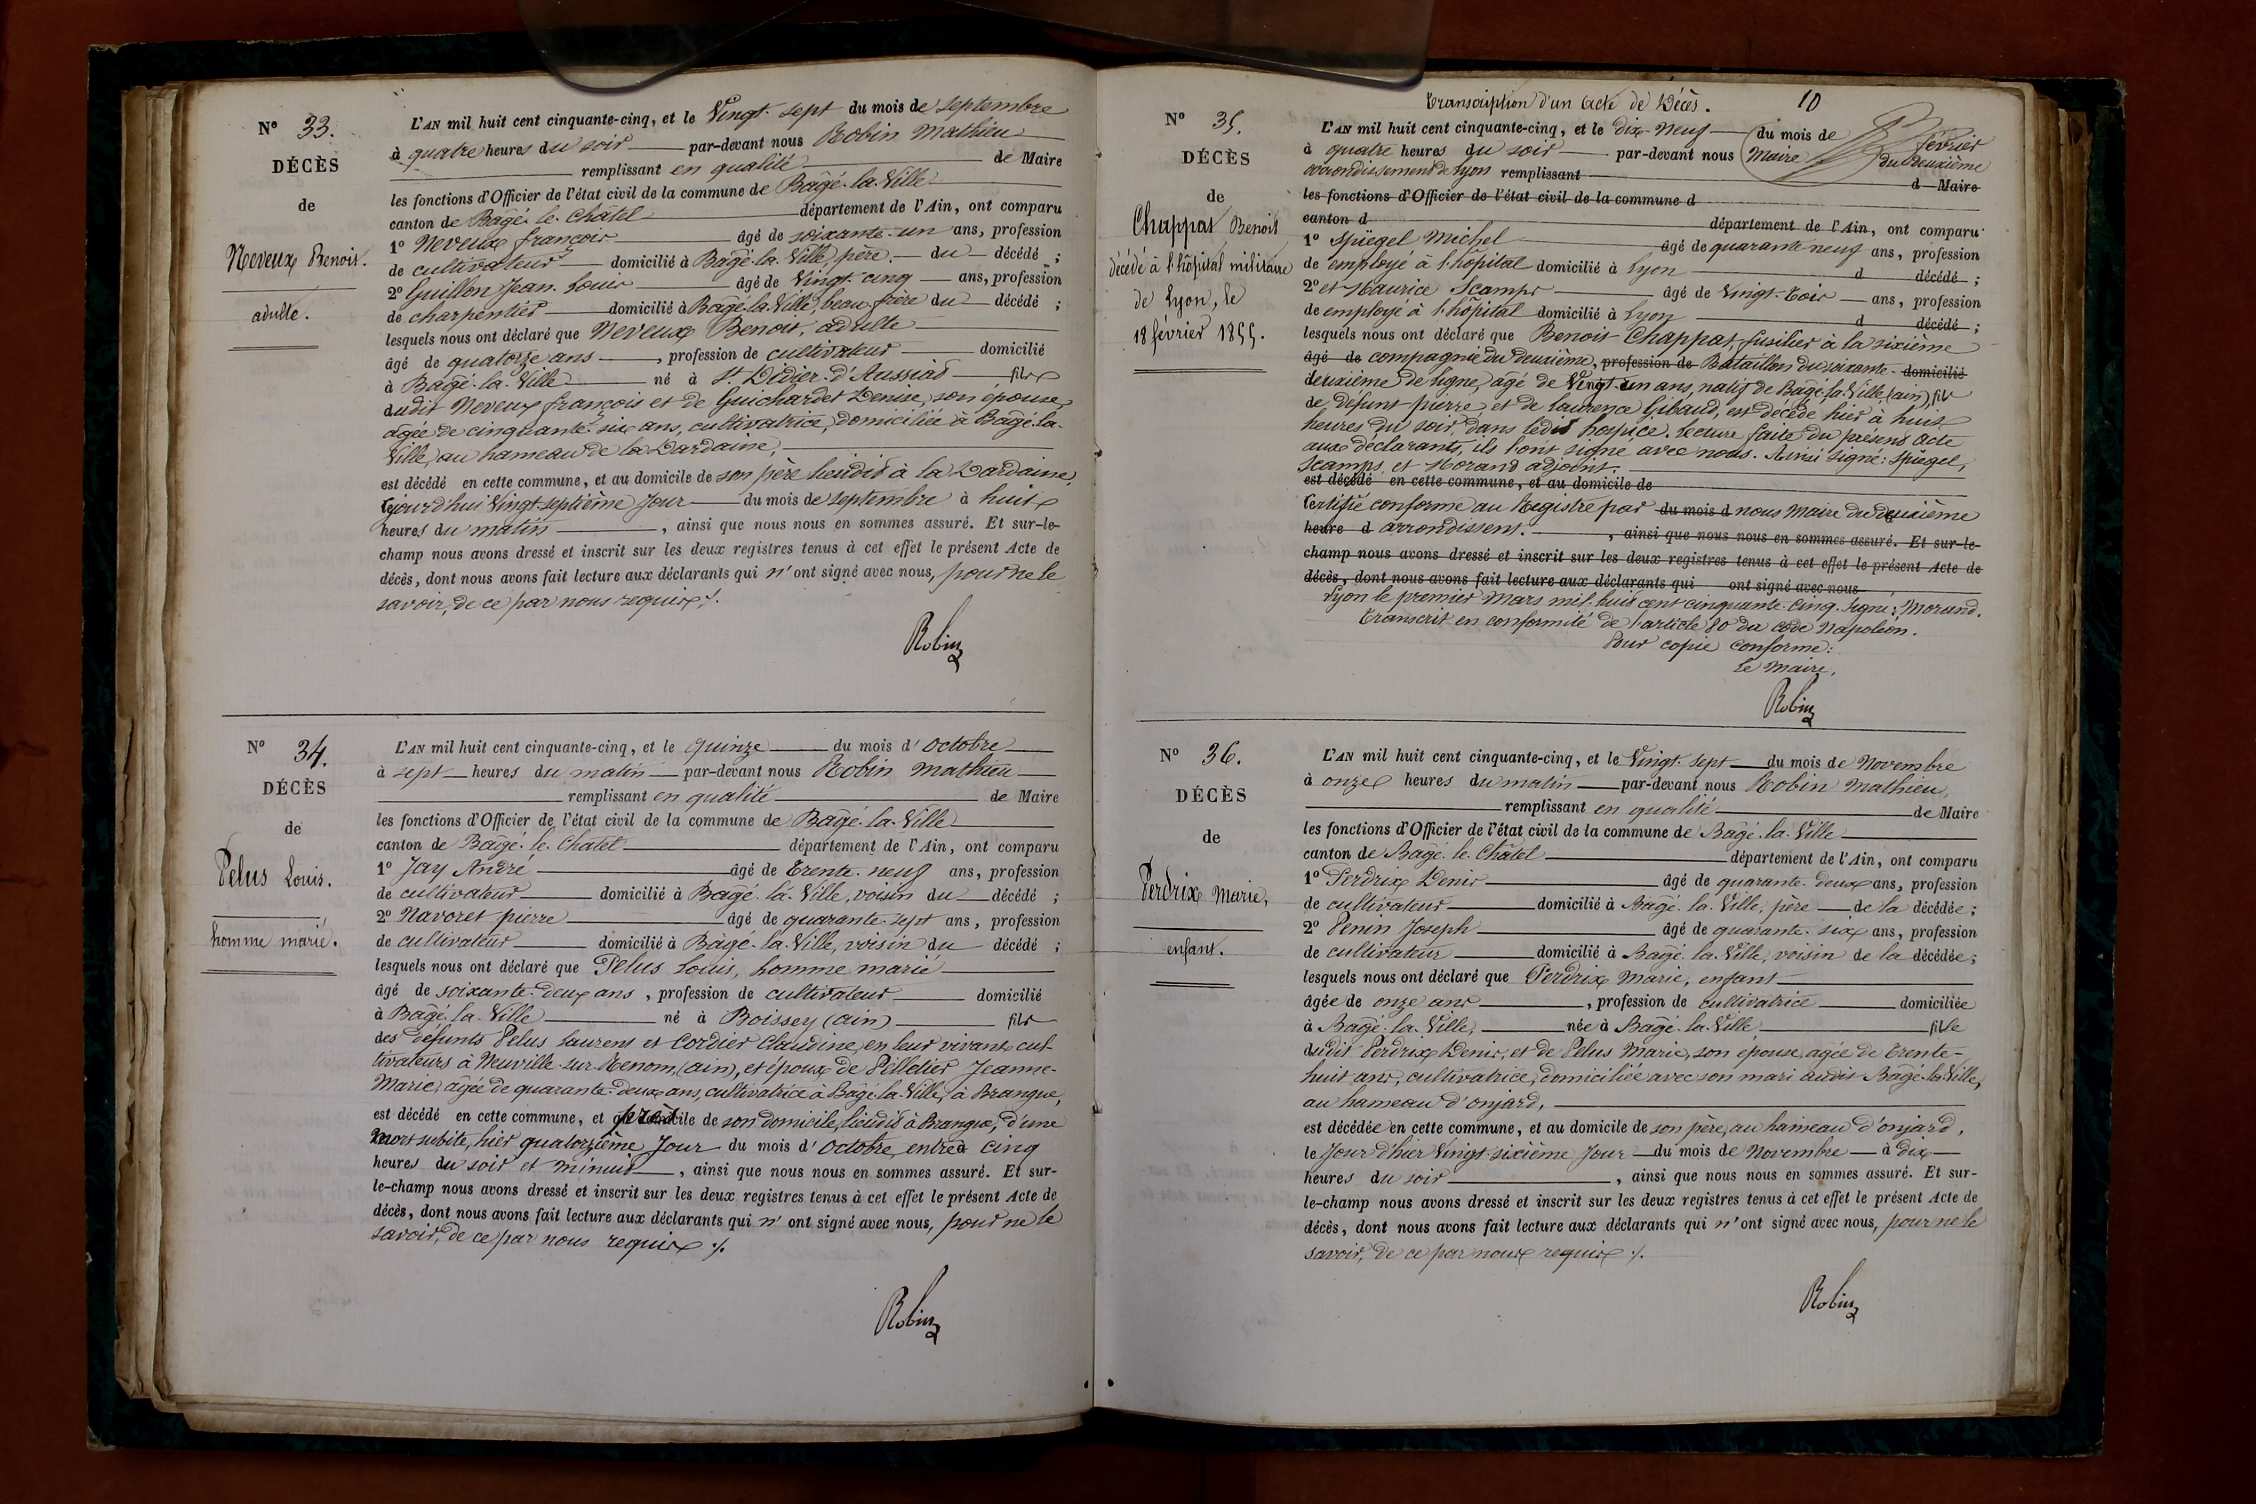 N° 33.
DÉCÈS
de
Neveux Benoit.
adulte.
L'AN mil huit cent cinquante-cinq, et le Vingt-sept du mois de septembre
à quatre heures du soir par-devant nous Robin Mathieu
remplissant en qualité de Maire
les fonctions d'Officier de l'état civil de la commune de Bâgé-la-Ville
canton de Bâgé-le-Châtel département de l'Ain, ont comparu
1° Neveux françois âgé de soixante-un ans, profession
de cultivateur domicilié à Bâgé-la-Ville, père du décédé ;
2° Guillon Jean Louis âgé de Vingt-cinq ans, profession
de charpentier domicilié à Bâgé-la-Ville, beau frère du décédé ;
lesquels nous ont déclaré que Neveux Benoit, adulte
âgé de quatorze ans, profession de cultivateur domicilié
à Bâgé-la-Ville né à St Didier-d'Aussiat fils
dudit Neveux françois et de Guichardet Denise, son épouse,
agée de cinquante-six ans, cultivatrice, domiciliée à Bâgé-la-
Ville, au hameau de la Dardaine,
est décédé en cette commune, et au domicile de son père lieudit à la Dardaine,
cejourd'hui Vingt-septième Jour du mois de septembre à huit
heures du matin, ainsi que nous nous en sommes assuré. Et sur-le-
champ nous avons dressé et inscrit sur les deux registres tenus à cet effet le présent Acte de
décès, dont nous avons fait lecture aux déclarants qui n'ont signé avec nous, pour ne le
savoir, de ce par nous requis /.
Robin
N° 34.
DÉCÈS
de
Pelus Louis.
homme marié.
L'AN mil huit cent cinquante-cinq, et le quinze du mois d'octobre
à sept heures du matin par-devant nous Robin Mathieu
remplissant en qualité de Maire
les fonctions d'Officier de l'état civil de la commune de Bâgé-la-Ville
canton de Bâgé-le-Chatel département de l'Ain, ont comparu
1° Jay André âgé de Trente-neuf ans, profession
de cultivateur domicilié à Bâgé-la-Ville, voisin du décédé ;
2° Navoret pierre âgé de quarante-sept ans, profession
de cultivateur domicilié à Bâgé-la-Ville, voisin du décédé ;
lesquels nous ont déclaré que Pelus Louis, homme marié
âgé de soixante-deux ans, profession de cultivateur domicilié
à Bâgé-la-Ville né à Boissey (ain) fils
des défunts Pelus Laurent et Cordier Claudine, en leur vivant cul-
tivateurs à Neuville-sur-Renom, (ain), et époux de Pelletier Jeanne-
Marie, agée de quarante-deux ans, cultivatrice à Bâgé-la-Ville, à Brangue,
est décédé en cette commune, et près de son domicile, lieudit à Brangue, d'une
mort subite, hier quatorzième Jour du mois d'octobre, entre cinq
heures du soir et minuit, ainsi que nous nous en sommes assuré. Et sur-
le-champ nous avons dressé et inscrit sur les deux registres tenus à cet effet le présent Acte de
décès, dont nous avons fait lecture aux déclarants qui n'ont signé avec nous, pour ne le
savoir, de ce par nous requis /.
Robin
Transcription d'un Acte de Décès. 10
N° 35.
DÉCÈS
de
Chappat Benoit
décédé à l'hôpital militaire
de Lyon, le
18 février 1855.
L'AN mil huit cent cinquante-cinq, et le dix-Neuf du mois de février
à quatre heures du soir par-devant nous Maire du deuxième
arrondissement de Lyon remplissant d Maire
les fonctions d'Officier de l'état civil de la commune d
canton d département de l'Ain, ont comparu
1° Spiegel Michel âgé de quarante neuf ans, profession
de employé à l'hôpital domicilié à Lyon d décédé ;
2° et Maurice Scamps âgé de Vingt-trois ans, profession
de employé à l'hôpital domicilié à Lyon d décédé ;
lesquels nous ont déclaré que Benoit Chappat, fusilier à la sixième
âgé de compagnie du deuxième, profession de Bataillon du soixante- domicilié
deuxième de ligne, âgé de Vingt-un ans, natif de Bâgé-la-Ville, (ain), fils
de défunt pierre, et de Laurence Gibaud, est décédé hier à huit
heures du soir, dans ledit hospice. Lecture faite du présent Acte
aux déclarants, ils l'ont signé avec nous. Ainsi signé : Spiegel,
Scamps, et Morand adjoint.
est décédé en cette commune, et au domicile de
Certifié conforme au Registre par du mois d nous Maire du deuxième
heure d arrondissent., ainsi que nous nous en sommes assuré. Et sur-le-
champ nous avons dressé et inscrit sur les deux registres tenus à cet effet le présent Acte de
décès, dont nous avons fait lecture aux déclarants qui ont signé avec nous
Lyon le premier Mars mil-huit cent cinquante-cinq. Signé : Morand.
Transcrit en conformité de l'article 80 du code Napoléon.
Pour copie conforme :
Le Maire,
Robin
N° 36.
DÉCÈS
de
Perdrix Marie,
enfant.
L'AN mil huit cent cinquante-cinq, et le Vingt-sept du mois de Novembre
à onze heures du matin par-devant nous Robin Mathieu,
remplissant en qualité de Maire
les fonctions d'Officier de l'état civil de la commune de Bâgé-la-Ville
canton de Bâgé-le-Châtel département de l'Ain, ont comparu
1° Perdrix Denis âgé de quarante-deux ans, profession
de cultivateur domicilié à Bâgé-la-Ville, père de la décédée ;
2° Penin Joseph âgé de quarante-six ans, profession
de cultivateur domicilié à Bâgé-la-Ville, voisin de la décédée ;
lesquels nous ont déclaré que Perdrix Marie, enfant
âgée de onze ans, profession de cultivatrice domiciliée
à Bâgé-la-Ville, née à Bâgé-la-Ville fille
dudit Perdrix Denis, et de Pelus Marie, son épouse, agée de Trente-
huit ans, cultivatrice, domiciliée avec son mari audit Bâgé-la-Ville,
au hameau d'onjard,
est décédée en cette commune, et au domicile de son père, au hameau d'onjard,
le Jour d'hier Vingt-sixième Jour du mois de Novembre à dix
heures du soir, ainsi que nous nous en sommes assuré. Et sur-
le-champ nous avons dressé et inscrit sur les deux registres tenus à cet effet le présent Acte de
décès, dont nous avons fait lecture aux déclarants qui n'ont signé avec nous, pour ne le
savoir, de ce par nous requis /.
Robin